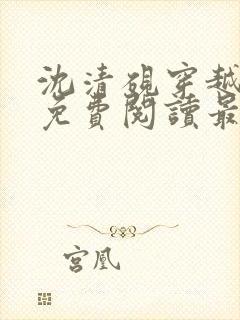 沈清硯穿越
免費閱讀最
宮凰